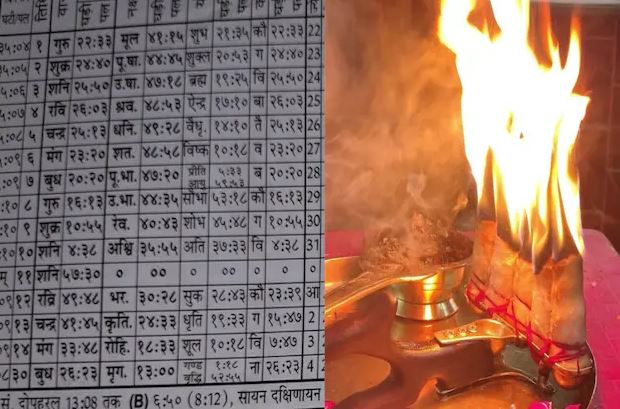 घटी/पल
३५:०४ १ गुरु २२:३३ मूल ४१:१५ शुभ २१:३५ कौ २२:३३ 22
३५:०५ २ शुक्र २४:४० पू.षा. ४४:४५ शुक्ल २०:५३ ग २४:४० 23
३५:०६ ३ शनि २५:५० उ.षा. ४७:१८ ब्रह्म १९:२५ वि २५:५० 24
३५:०७ ४ रवि २६:०३ श्रव. ४८:५३ ऐन्द्र १७:१० बा २६:०३ 25
३५:०८ ५ चन्द्र २५:१३ धनि. ४९:२८ वैधृ. १४:१० तै २५:१३ 26
३५:०९ ६ मंग २३:२० शत. ४८:५८ विष्क १०:१८ व २३:२० 27
३५:०९ ७ बुध २०:२० पू.भा. ४७:२० प्रीति ५:३३ ब २०:२० 28
आयु ५९:५३
३५:१० ८ गुरु १६:१३ उ.भा. ४४:३५ सौभा ५३:१८ कौ १६:१३ 29
३५:१० ९ शुक्र १०:५५ रेव. ४०:४३ शोभ ४५:४८ ग १०:५५ 30
३५:१० १० शनि ४:३८ अश्वि ३५:५५ अति ३७:३३ वि ४:३८ 31
म् ११ शनि ५७:३० ० ०० ० ० ० ०
३५:०९ १२ रवि ४९:४८ भर. ३०:२८ सुक २८:४३ कौ २३:३९ आ
३५:०९ १३ चन्द्र ४१:४५ कृति. २४:३३ धृति १९:३३ ग १५:४७ 2
३५:०९ १४ मंग ३३:४८ रोहि. १८:३३ शूल १०:१८ वि ७:४७ 3
३० बुध २६:२३ मृग. १३:०० गण्ड १:१८ ना २६:२३ 4
वृद्धि ५२:५५
सं दोपहरल 13:08 तक (B) ६:५० (8:12), सायन दक्षिणायन